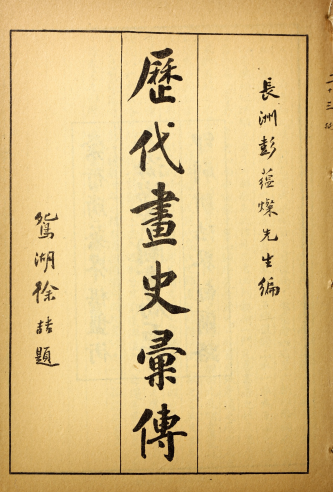 長洲彭蘊燦先生編
歷代畫史彙傳
鴛湖徐喆題